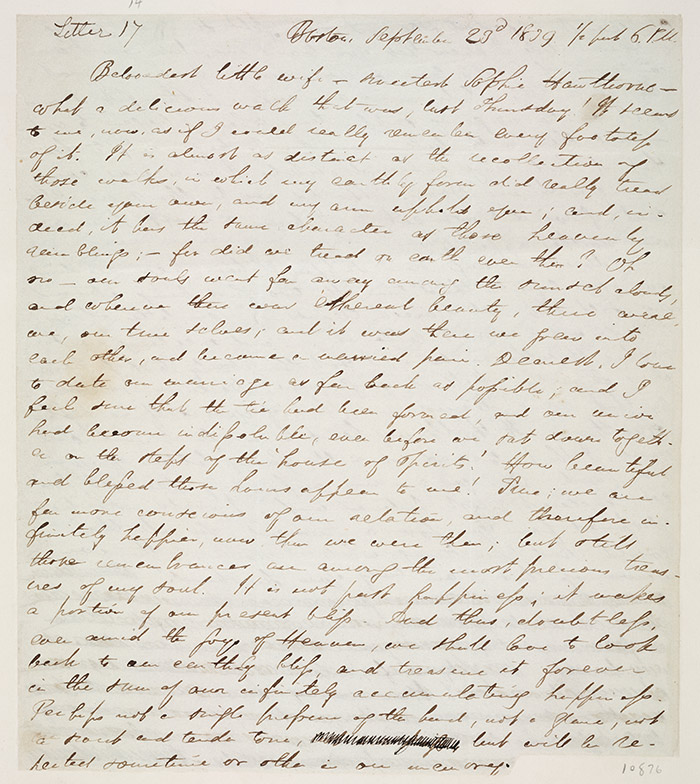 14
Letter 17
Boston, September 23d 1839 ½ past 6. P.M.
Belovedest little wife – sweetest Sophie Hawthorne –
what a delicious walk that was, last Thursday! It seems
to me, now, as if I could really remember every footstep
of it. It is almost as distinct as the recollection of
those walks, in which my earthly form did really tread
beside your own, and my arm upheld you; and, in-
deed, it has the same character as those heavenly
ramblings; – for did we tread on earth even then? Oh
no – our souls went far away among the sunset clouds,
and wherever there was ethereal beauty, there were
we, our true selves; and it was there we grew into
each other, and became a married pair. Dearest, I love
to date our marriage as far back as possible; and I
feel sure that the tie had been formed, and our union
had become indissoluble, even before we sat down togeth-
er on the steps of the 'house of spirits.' How beautiful
and blessed those hours appear to me! True; we are
far more conscious of our relation, and therefore in-
finitely happier, now than we were then; but still
those remembrances are among the most precious treas-
ures of my soul. It is not past happiness; it makes
a portion of our present bliss. And thus, doubtless,
even amid the joys of Heaven, we shall love to look
back to our earthly bliss, and treasure it forever
in the sum of our infinitely accumulating happiness.
Perhaps not a single pressure of the hand, not a glance, not
a sweet and tender tone, but will be re-
peated sometime or other in our memory.
10876